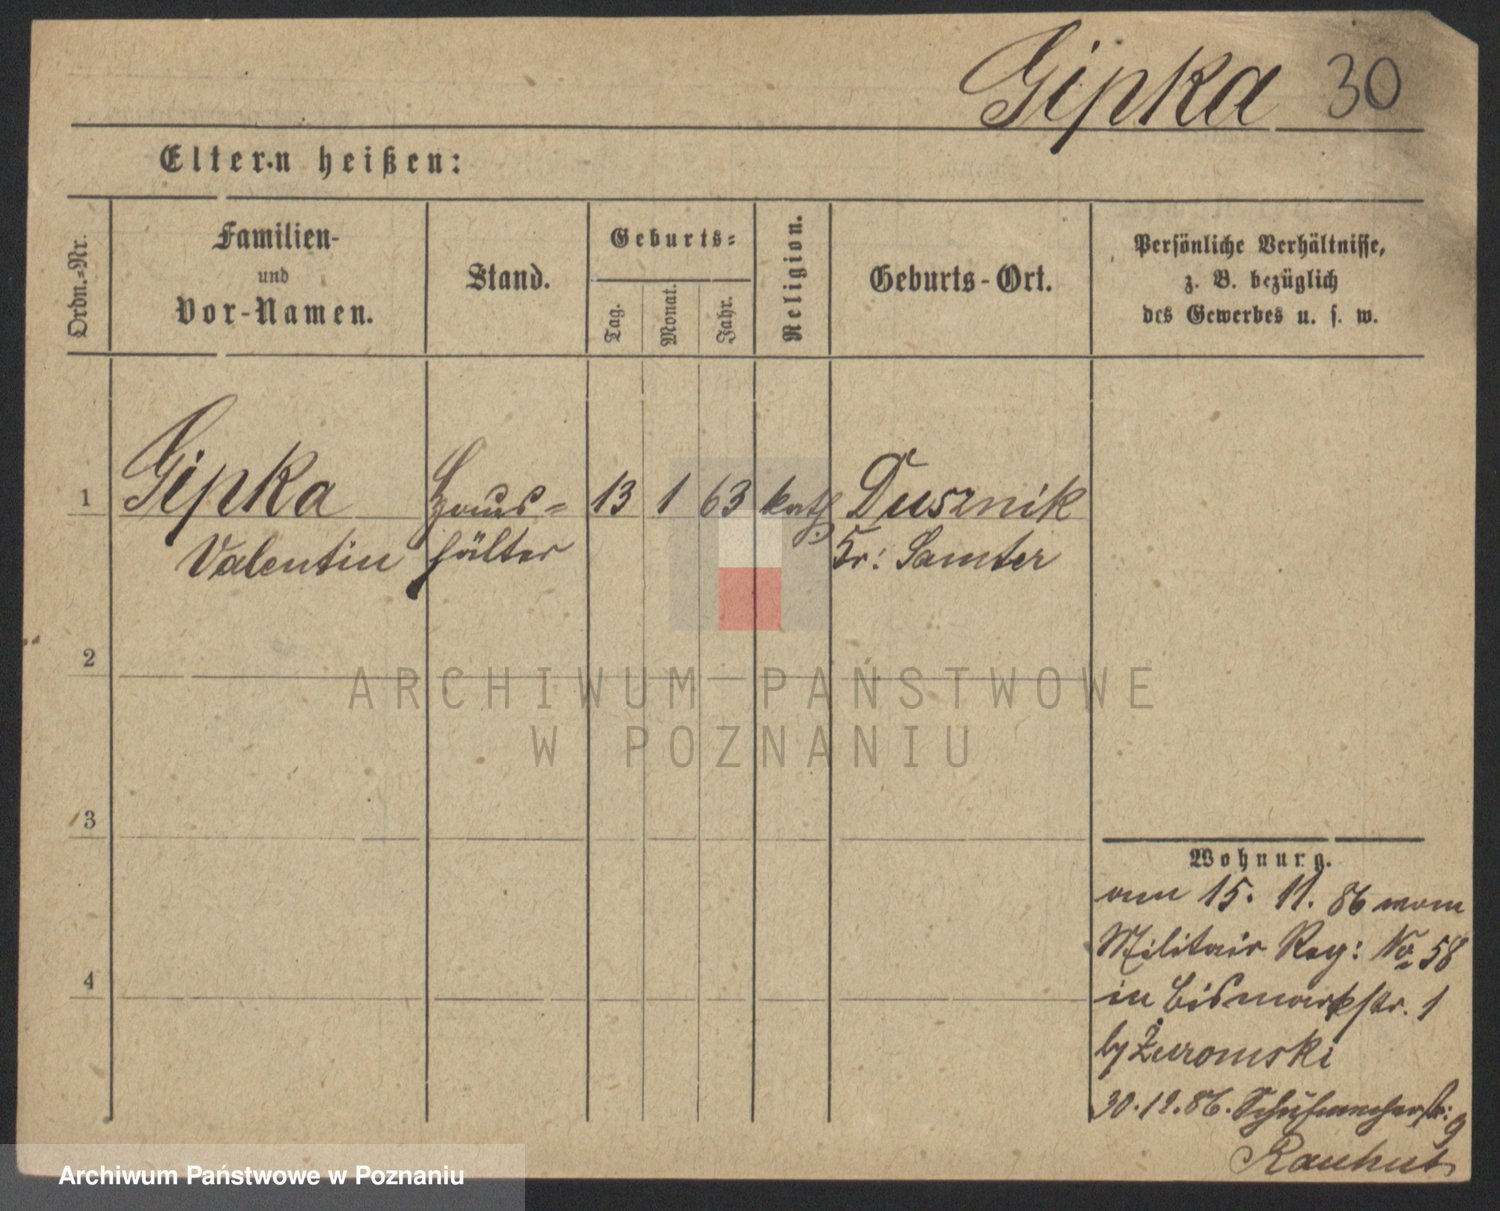 Gipka 30
Eltern heißen:
Ordn.=Nr.
Familien-
und
Vor-Namen.
Stand.
Geburts=
Tag.
Monat.
Jahr.
Religion.
Geburts-Ort.
Persönliche Verhältnisse,
z. B. bezüglich
des Gewerbes u. s. w.
1 Gipka Haus= 13 1 63 kath. Dusznik
Valentin hälter Kr: Samter
2
ARCHIWUM PAŃSTWOWE
W POZNANIU
3
Wohnung.
am 15. 11. 86 vom
Militair Reg: No 58
4
in Bismarkstr. 1
by Żuromski
30.12.86. Schuhmacherstr: 9
Rauhut
Archiwum Państwowe w Poznaniu